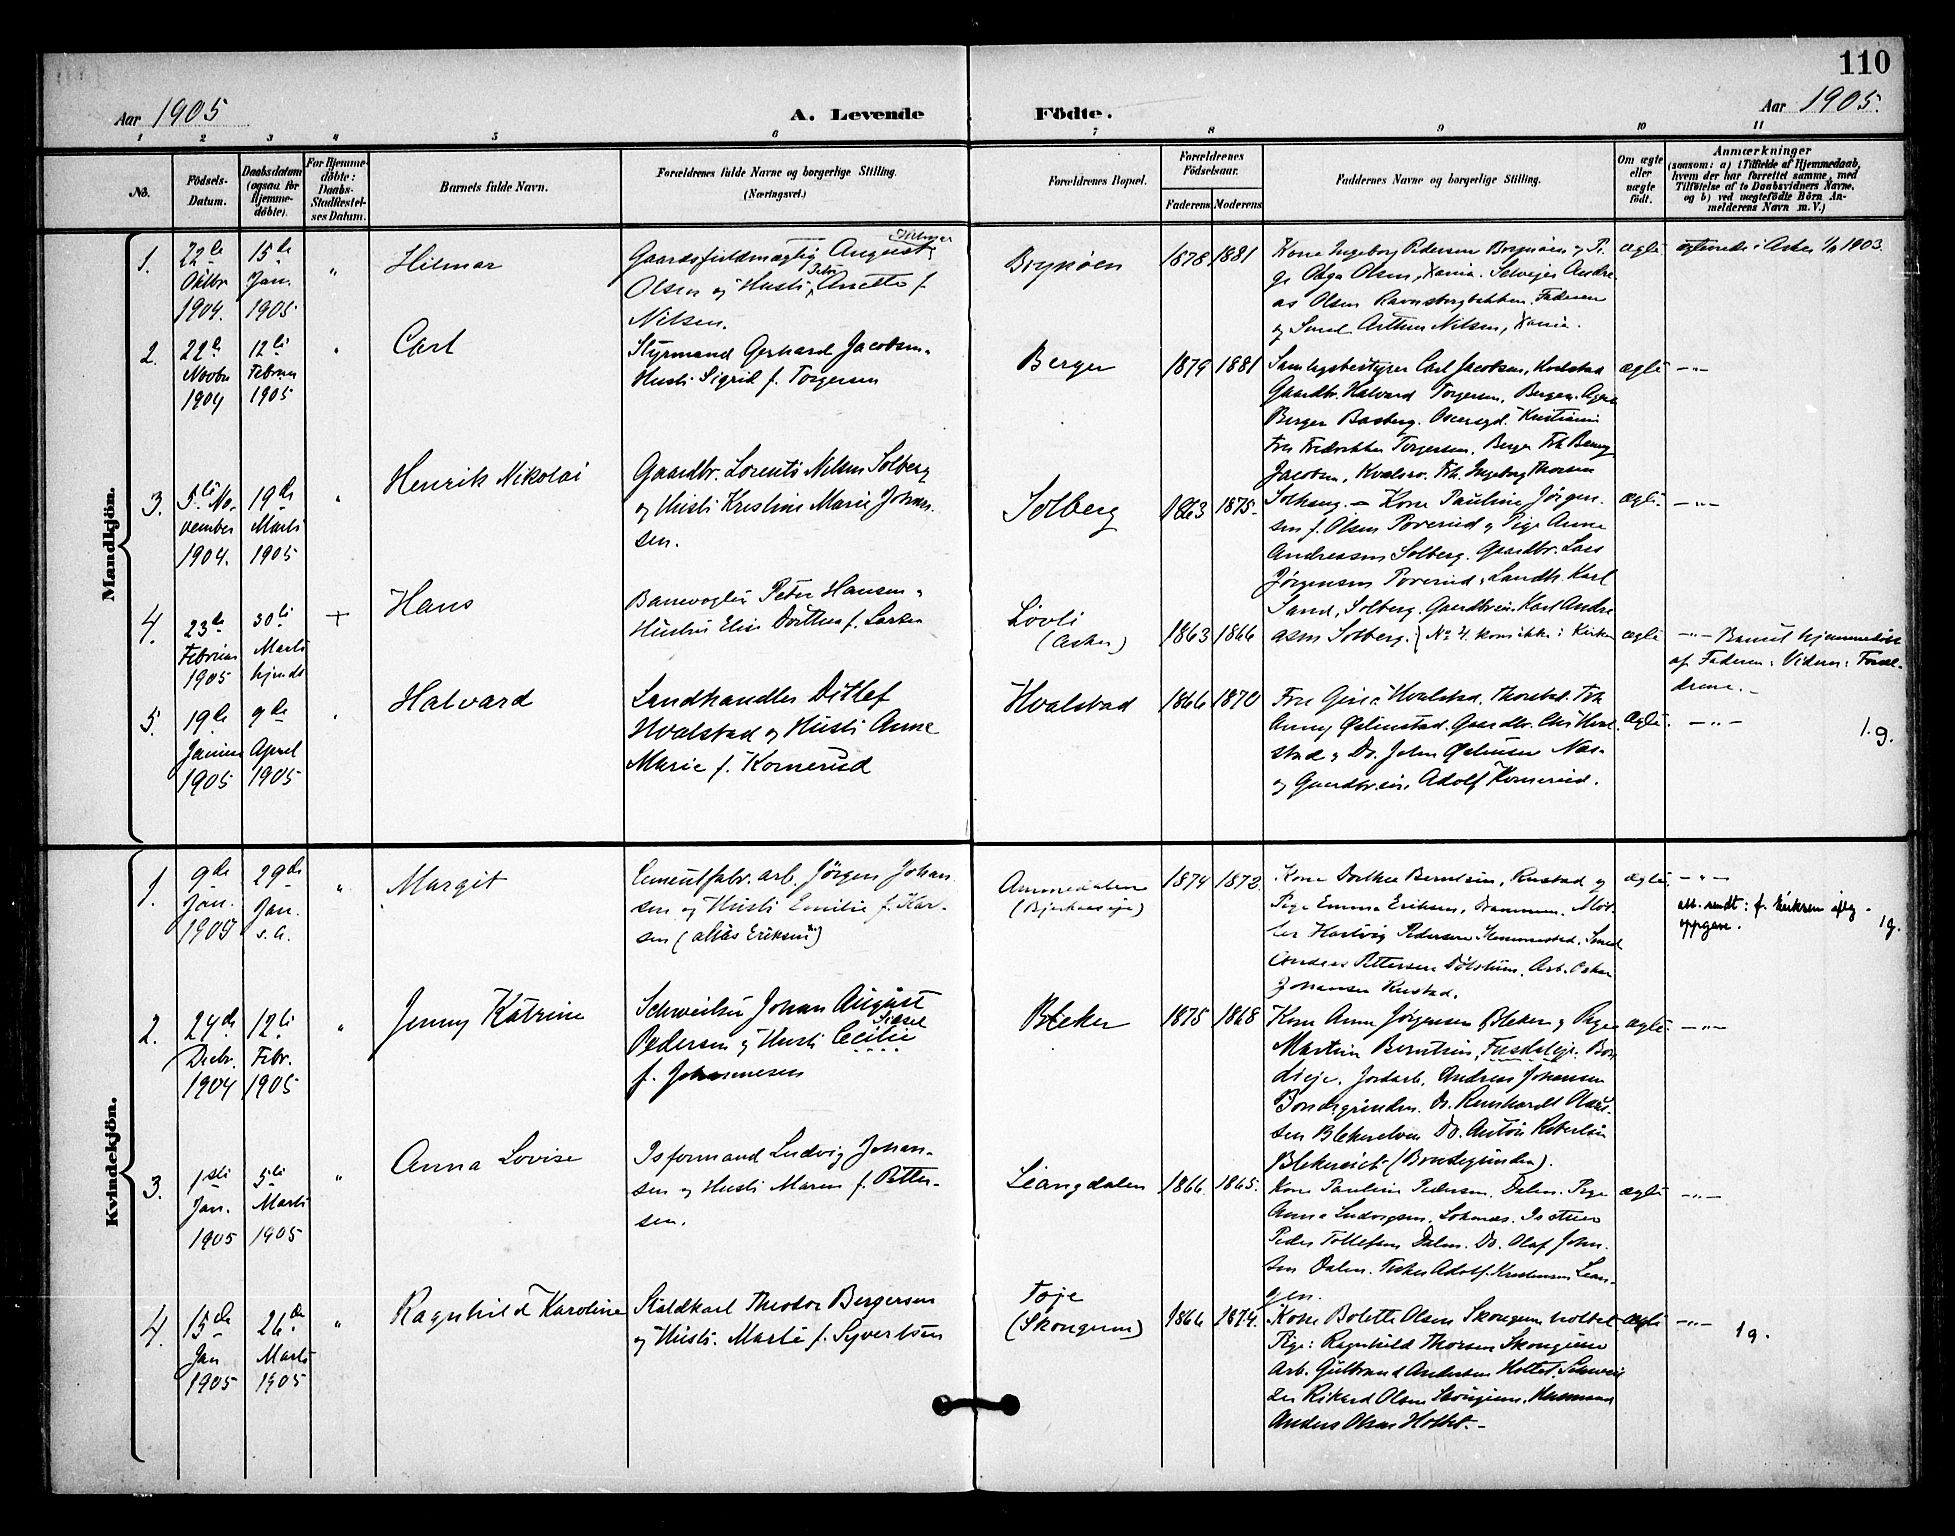 110
Aar 1905
A. Levende Födte.
Aar 1905.
1 2 3 4 5 6 7 8 9 10 11
No.
Födsels-
Datum.
Daabsdatum
(ogsaa for
Hjemme-
döbte).
For Hjemme-
döbte:
Daabs-
Stadfæstel-
ses Datum.
Barnets fulde Navn.
Forældrenes fulde Navne og borgerlige Stilling.
(Næringsvei.)
Forældrenes Bopæl.
Forældrenes
Födselsaar.
Faderens Moderens
Faddernes Navne og borgerlige Stilling.
Om ægte
eller
uægte
födt.
Anmærkninger
(saasom: a) i Tilfælde af Hjemmedaab,
hvem der har forrettet samme, med
Tilföielse af to Daabsvidners Navne,
og b) ved uægtefödte Börn An-
melderens Navn m. V.)
Mandkjön.
1.
22de
Oktbr
1904.
15de
Jan.
1905
"
Hilmar
Gaardsfuldmægtig August Hilmar
Olsen og Hustru Anette f.
Nilsen.
1878 1881
Kone Ingeborg Pedersen
ge Olga Olsen, Xania. Selveier Andre
as Olsen Ravnsborgbakken. Faderen
og Smed Arthur Nilsen, Xania.
ægte
i Asker 1903.
2.
22de
Novbr
1904
12te
Februar
1905
"
Carl
Styrmand Gerhard Jacobsen
Hustru Sigrid f. Torgersen
Berger
1879 1881
Carl Jacobsen, Hvalstad
Gaardbr. Halvard Torgersen, Berger.
Berger Kristiania
Fru Fredrikke Torgersen, Berger Frk
Jacobsen, Frk. Ingeborg Thorsen
ægte
—"—
3.
5te No-
vember
1904.
19de
Marts
1905
"
Henrik Nikolai
Gaardbr. Lorents Nilsen Solberg
og Hustru Kristine Marie Johan-
sen.
Solberg
1863 1875.
Kone Pauline Jørgen-
sen f. Olsen Poverud og Pige Anne
Andreassen Solberg. Gaardbr. Lars
Jørgensen Poverud, Landh. Karl
Sand, Solberg. Gaardbreier Karl Andre
asen Solberg. (No 4. kom ikke i Kirken
ægte
—"—
4.
23de
Februar
1905
30te
Marts
hjemdt
+
Hans
Banevogter Peter Hansen og
Hustru Elise Dorthea f. Larsen
Løvli
(Asker)
1863 1866
ægte
—"— Barnet hjemmedøbt
af Faderen. Vidner: Foræl-
drene.—
5.
19de
Januar
1905
9de
April
1905
"
Halvard
Landhandler Ditlef
Hvalstad og Hustru Anne
Marie f. Komerud
Hvalstad
1866 1870
Fru Gina Hvalstad,
Anny Østenstad. Gaardbr. Hval
stad og Do. John
og Gaardbr. Adolf Komerud.
ægte
—"—
1.g.
Kvindekjön.
1.
9de
Jan.
1905
29de
Jan.
s. A.
"
Margit
Cementfabr. arb. Jørgen Johan-
sen og Hustru Emilie f. Kar-
sen (alias Eriksen)
1874 1873.
Kone Dorthea Berntsen, Rustad og
Pige Emma Eriksen, Drammen. Møl-
ler Hartvig Pedersen Smed
Andreas Pettersen Arb. Oskar
Johansen Rustad.
ægte
—"—
att. sendt: f. Eriksen iflg
oppgave.
1g.
2.
24de
Decbr.
1904
12te
Febr.
1905
"
Jenny Katrine
Schweitser Johan August
Pedersen og Hustru Cecilie Sidsel
f. Johannesen
Bleker
1875 1868
Kone Anna Jørgensen Bleker og Pige
Martin Berntsen, Bon
dieje. Jordarb. Andreas Johansen
Bondegrinden. Do. Reinhardt
sen Blekerelven Do. Anton Robertsen
(Bondegrinden).
ægte
—"—
3.
1ste
Jan.
1905
5te
Marts
1905
"
Anna Lovise
Isformand Ludvig Johan-
sen og Hustru Maren f. Petter-
sen.
Leangdalen
1866. 1865.
Kone Pauline Pedersen, Dalen. Pige
Anna Ludvigsen,
Peder Tollefsen Dalen. Do. Olaf Johan-
sen Dalen. Fisker Adolf Kristensen Lean-
gen.
ægte
—"—
4.
15de
Jan
1905
26de
Marts
1905
"
Ragnhild Karoline
Staldkarl Theodor Bergersen
og Hustru Marte f. Syvertsen
(Skougum)
1866 1874.
Kone Bolette Olsen Skougum
Pige: Ragnhild Thorsen Skougum
Arb. Gulbrand Andersen Schweit
zer Rikard Olsen Skougum, Husmand
Anders Olsen
ægte
—"—
1g.